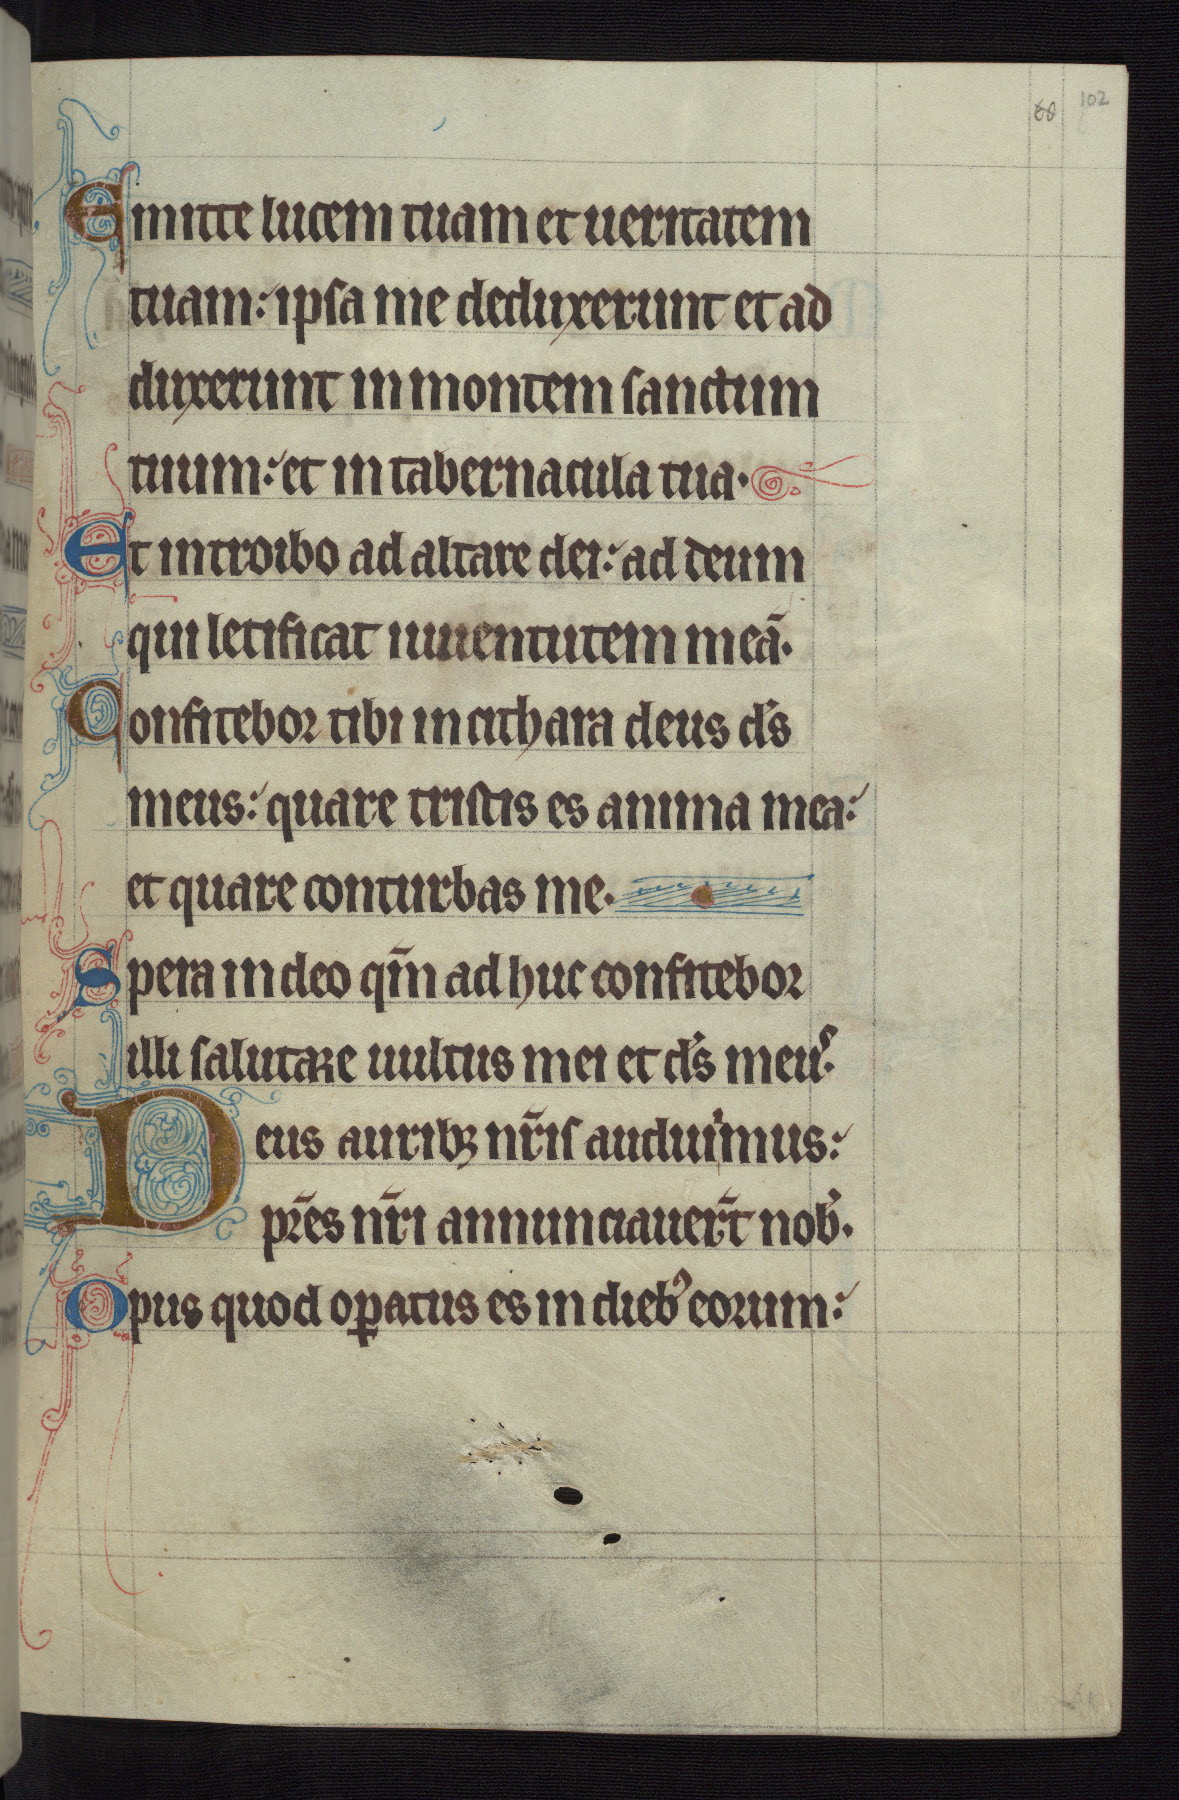 60 102
Emitte lucem tuam et ueritatem
tuam: ipsa me deduxerunt et ad
duxerunt in montem sanctum
tuum: et in tabernacula tua.
Et introibo ad altare dei: ad deum
qui letificat iuuentutem meā.
Confitebor tibi in cithara deus ds̄
meus: quare tristis es anima mea:
et quare conturbas me.
Spera in deo qm̄ ad huc confitebor
illi salutare uultus mei et ds̄ meus.
Deus auribꝫ nr̄is audiuimus:
pr̄es nr̄i annunciauer̄t nob̄.
Opus quod oꝑatus es in diebꝰ eorum: